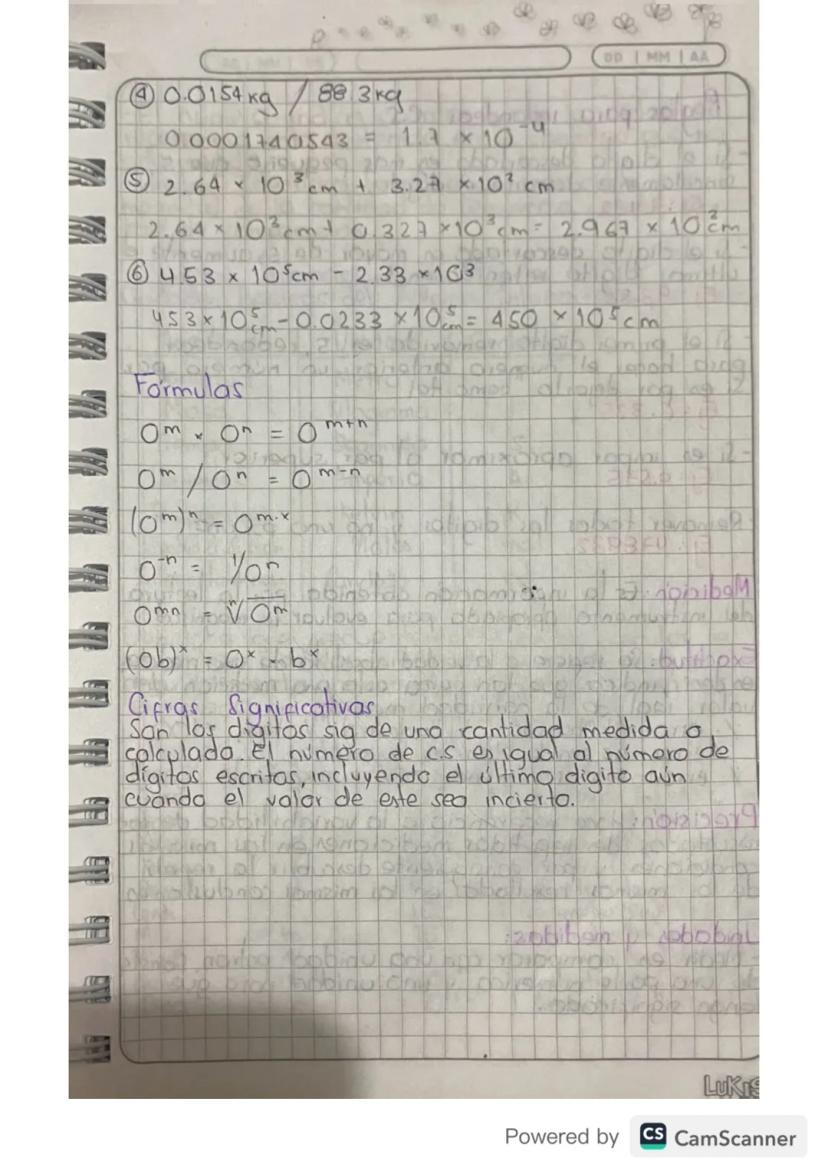 DD | MM | AA
④ 0.0154 kg / 88 3 kg
0.0001740543 = 1.7 × 10⁻⁴
⑤ 2.64 × 10³ cm + 3.27 × 10² cm
2.64 × 10³ cm + 0.327 × 10³ cm = 2.967 × 10² cm
⑥ 453 × 10⁵ cm - 2.33 × 10³
453 × 10⁵ cm - 0.0233 × 10⁵ cm = 450 × 10⁵ cm
Fórmulas
aᵐ × aⁿ = aᵐ⁺ⁿ
aᵐ / aⁿ = aᵐ⁻ⁿ
(aᵐ)ⁿ = aᵐ·ˣ
a⁻ⁿ = 1/aⁿ
aᵐⁿ = ⁿ√aᵐ
(ab)ˣ = aˣ · bˣ
Cifras Significativas
Son los dígitos sig de una cantidad medida o
calculada. El número de c.s es igual al número de
dígitos escritos, incluyendo el último digito aún
cuando el valor de este sea incierto.
LUKAS
Powered by CS CamScanner